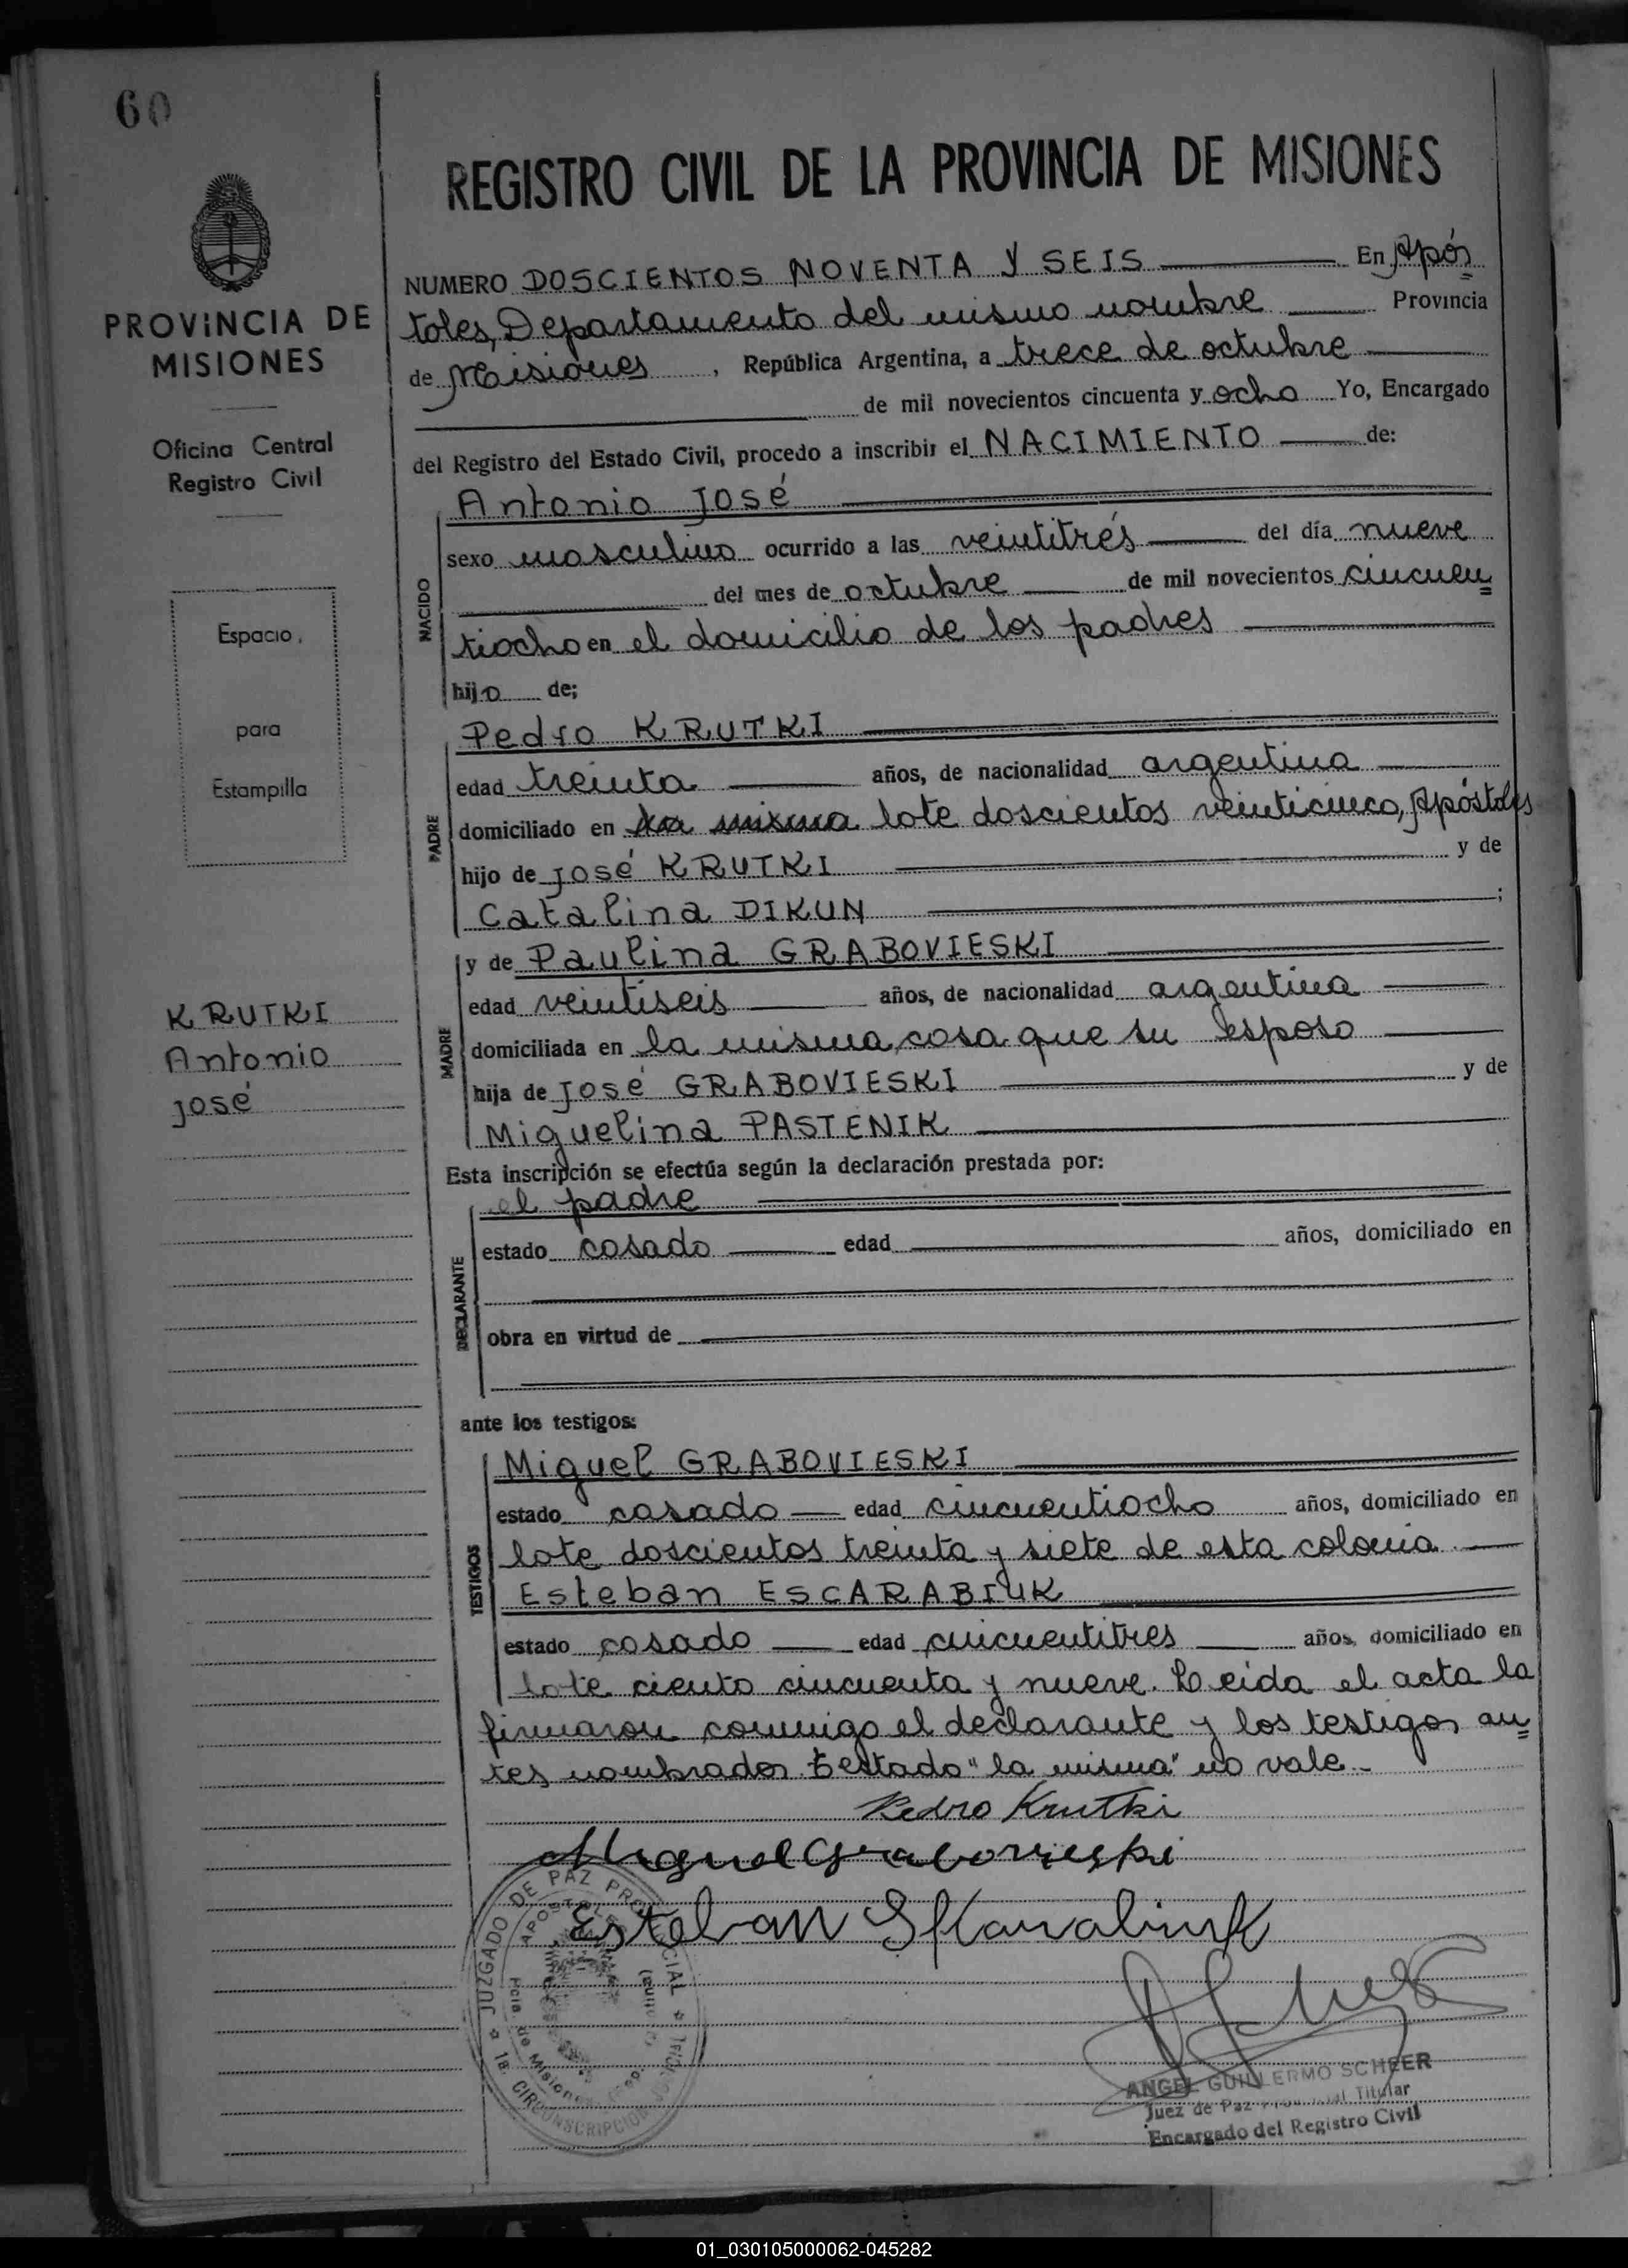 60
PROVINCIA DE
MISIONES
Oficina Central
Registro Civil
Espacio
para
Estampilla
KRUTKI
Antonio
José
REGISTRO CIVIL DE LA PROVINCIA DE MISIONES
NUMERO DOSCIENTOS NOVENTA Y SEIS En Após
toles, Departamento del mismo nombre Provincia
de Misiones, República Argentina, a trece de octubre
de mil novecientos cincuenta y ocho Yo, Encargado
del Registro del Estado Civil, procedo a inscribir el NACIMIENTO de:
Antonio José
NACIDO
sexo masculino ocurrido a las veintitrés del día nueve
del mes de octubre de mil novecientos cincuen
tiocho en el domicilio de los padres
hijo de;
Pedro KRUTKI
PADRE
edad treinta años, de nacionalidad argentina
domiciliado en la misma lote doscientos veinticinco, Apóstoles
hijo de José KRUTKI y de
Catalina DIKUN ;
y de Paulina GRABOVIESKI
MADRE
edad veintiseis años, de nacionalidad argentina
domiciliada en la misma casa que su esposo
hija de José GRABOVIESKI y de
Miguelina PASTENIK
Esta inscripción se efectúa según la declaración prestada por:
el padre
DECLARANTE
estado casado edad años, domiciliado en
obra en virtud de
ante los testigos:
Miguel GRABOVIESKI
TESTIGOS
estado casado edad cincuentiocho años, domiciliado en
lote doscientos treinta y siete de esta colonia.
Esteban ESCARABIUK
estado casado edad cincuentitres años, domiciliado en
lote ciento cincuenta y nueve. Leida el acta la
firmaron conmigo el declarante y los testigos an
tes nombrados. Testado "la misma" no vale.-
Pedro Krutki
Miguel Grabovieski
Esteban Skarabiuk
JUZGADO DE PAZ PROVINCIAL
APOSTOLES
Pcia. de Misiones
1a. CIRCUNSCRIPCION
ANGEL GUILLERMO SCHEER
Juez de Paz Provincial Titular
Encargado del Registro Civil
01_030105000062-045282